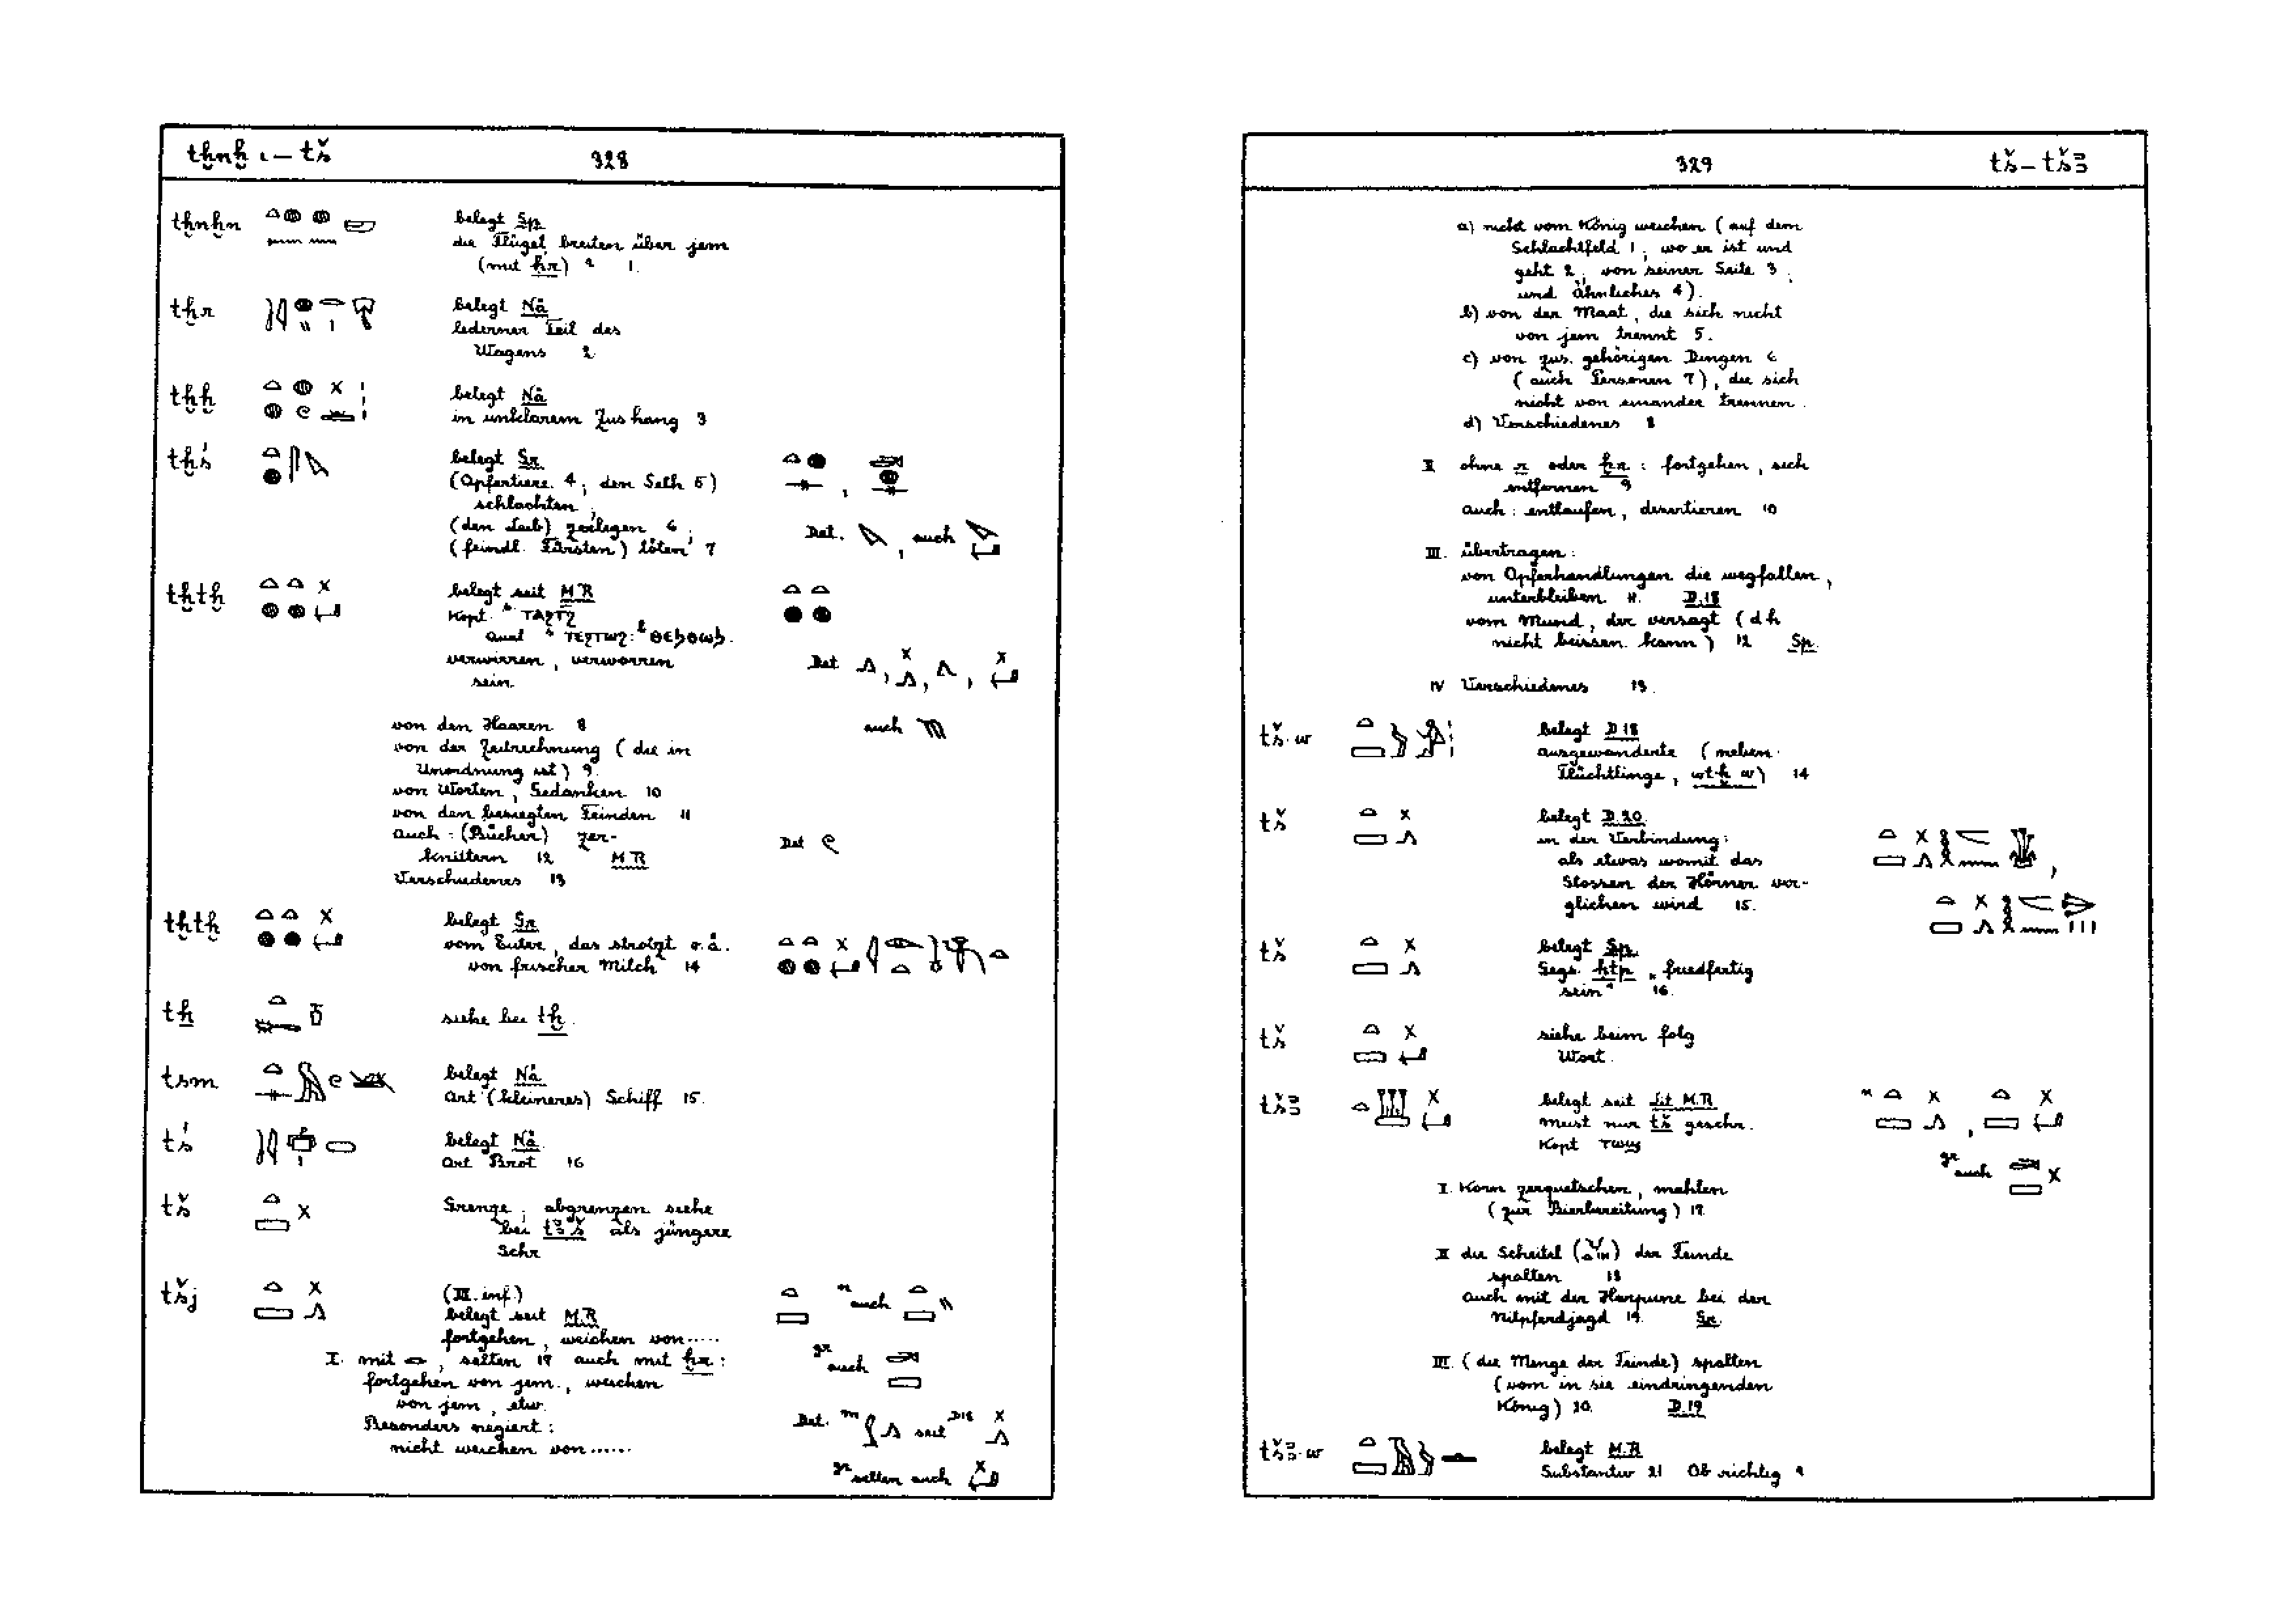 tḫnḫ. — tš
328
tḫnḫn
belegt Sp.
die Flügel breiten über jem
(mit ḥr) ? 1.
tḫr
belegt Nä
lederner Teil des
Wagens 2
tḫḫ
belegt Nä
in unklarem Zushang 3
tḫś
belegt Gr.
(Opfertiere 4; den Seth 5)
schlachten;
(den Leib) zerlegen 6;
(feindl. Fürsten) töten 7
Det. , auch
tḫtḫ
belegt seit M.R
Kopt. ᵇ ⲧⲁϩⲧϩ
Qual ᵇ ⲧⲉϩⲧⲱϩ: ᵇ ⲑⲉϧⲑⲱϧ.
verwirren, verworren
sein.
Det
auch
von den Haaren 8
von der Zeitrechnung (die in
Unordnung ist) 9.
von Worten, Gedanken 10
von den besiegten Feinden 11
auch: (Bücher) zer-
knittern 12 M.R
Det
Verschiedenes 13
tḫtḫ
belegt Gr.
vom Euter, das strotzt o.ä.
von frischer Milch 14
tẖ
siehe bei tḫ.
tsm
belegt Nä
Art (kleineres) Schiff 15.
tś
belegt Nä.
Art Brot 16
tš
Grenze; abgrenzen siehe
bei tꜣš als jüngere
Schr
tšj
(III. inf.)
belegt seit M.R
fortgehen, weichen von.....
ⁿ auch
I. mit , selten 17 auch mit ḥr:
gr auch
fortgehen von jem., weichen
von jem, etw.
Besonders negiert:
nicht weichen von......
Det. ᵐ seit D18
gr selten auch
329
tš — tšꜣ
a) nicht vom König weichen (auf dem
Schlachtfeld 1; wo er ist und
geht 2; von seiner Seite 3;
und Ähnliches 4).
b) von der Maat, die sich nicht
von jem trennt 5.
c) von zus. gehörigen Dingen 6
(auch Personen 7), die sich
nicht von einander trennen.
d) Verschiedenes 8
II ohne r oder ḥr: fortgehen, sich
entfernen 9
auch: entlaufen, desertieren 10
III. übertragen:
von Opferhandlungen die wegfallen,
unterbleiben 11. D.18
vom Mund, der versagt (d h
nicht beissen kann) 12 Sp.
IV Verschiedenes 13.
tš·w
belegt D.18
Ausgewanderte (neben
Flüchtlinge, wtḫ w) 14
tš
belegt D.20.
in der Verbindung:
als etwas womit das
Stossen der Hörner ver-
glichen wird 15.
tš
belegt Sp.
Gegs. ḥtp „friedfertig
sein“ 16.
tš
siehe beim folg
Wort.
tšꜣ
belegt seit Lit M.R
meist nur tš geschr.
Kopt ⲧⲱϣ
gr auch
I. Korn zerquetschen, mahlen
(zur Bierbereitung) 17.
II die Scheitel ( ) der Feinde
spalten 18
auch mit der Harpune bei der
Nilpferdjagd 19. Gr.
III. (die Menge der Feinde) spalten
(vom in sie eindringenden
König) 20. D.19
tšꜣ·w
belegt M.R
Substantiv 21 Ob richtig ?